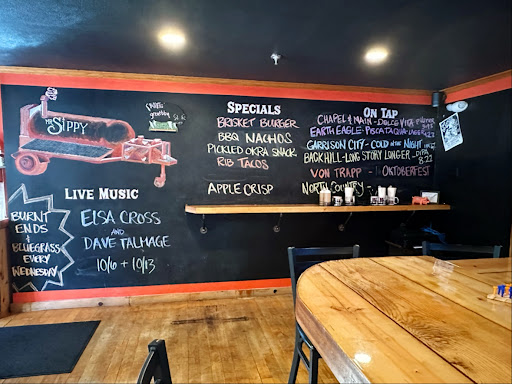 MR SIPPY
LIVE MUSIC
ELSA CROSS
AND
DAVE TALMAGE
10/6 + 10/13
BURNT
ENDS
&
BLUEGRASS
EVERY
WEDNESDAY
SPECIALS
BRISKET BURGER
BBQ NACHOS
PICKLED OKRA SNACK
RIB TACOS
APPLE CRISP
ON TAP
CHAPEL & MAIN - DOLCE VITA PILSNER
EARTH EAGLE - PISCATAQUA LAGER
GARRISON CITY - COLD IN THE NIGHT
BACKHILL - LONG STORY LONGER - DIPA 8.22
VON TRAPP - OKTOBERFEST
NORTH COUNTRY